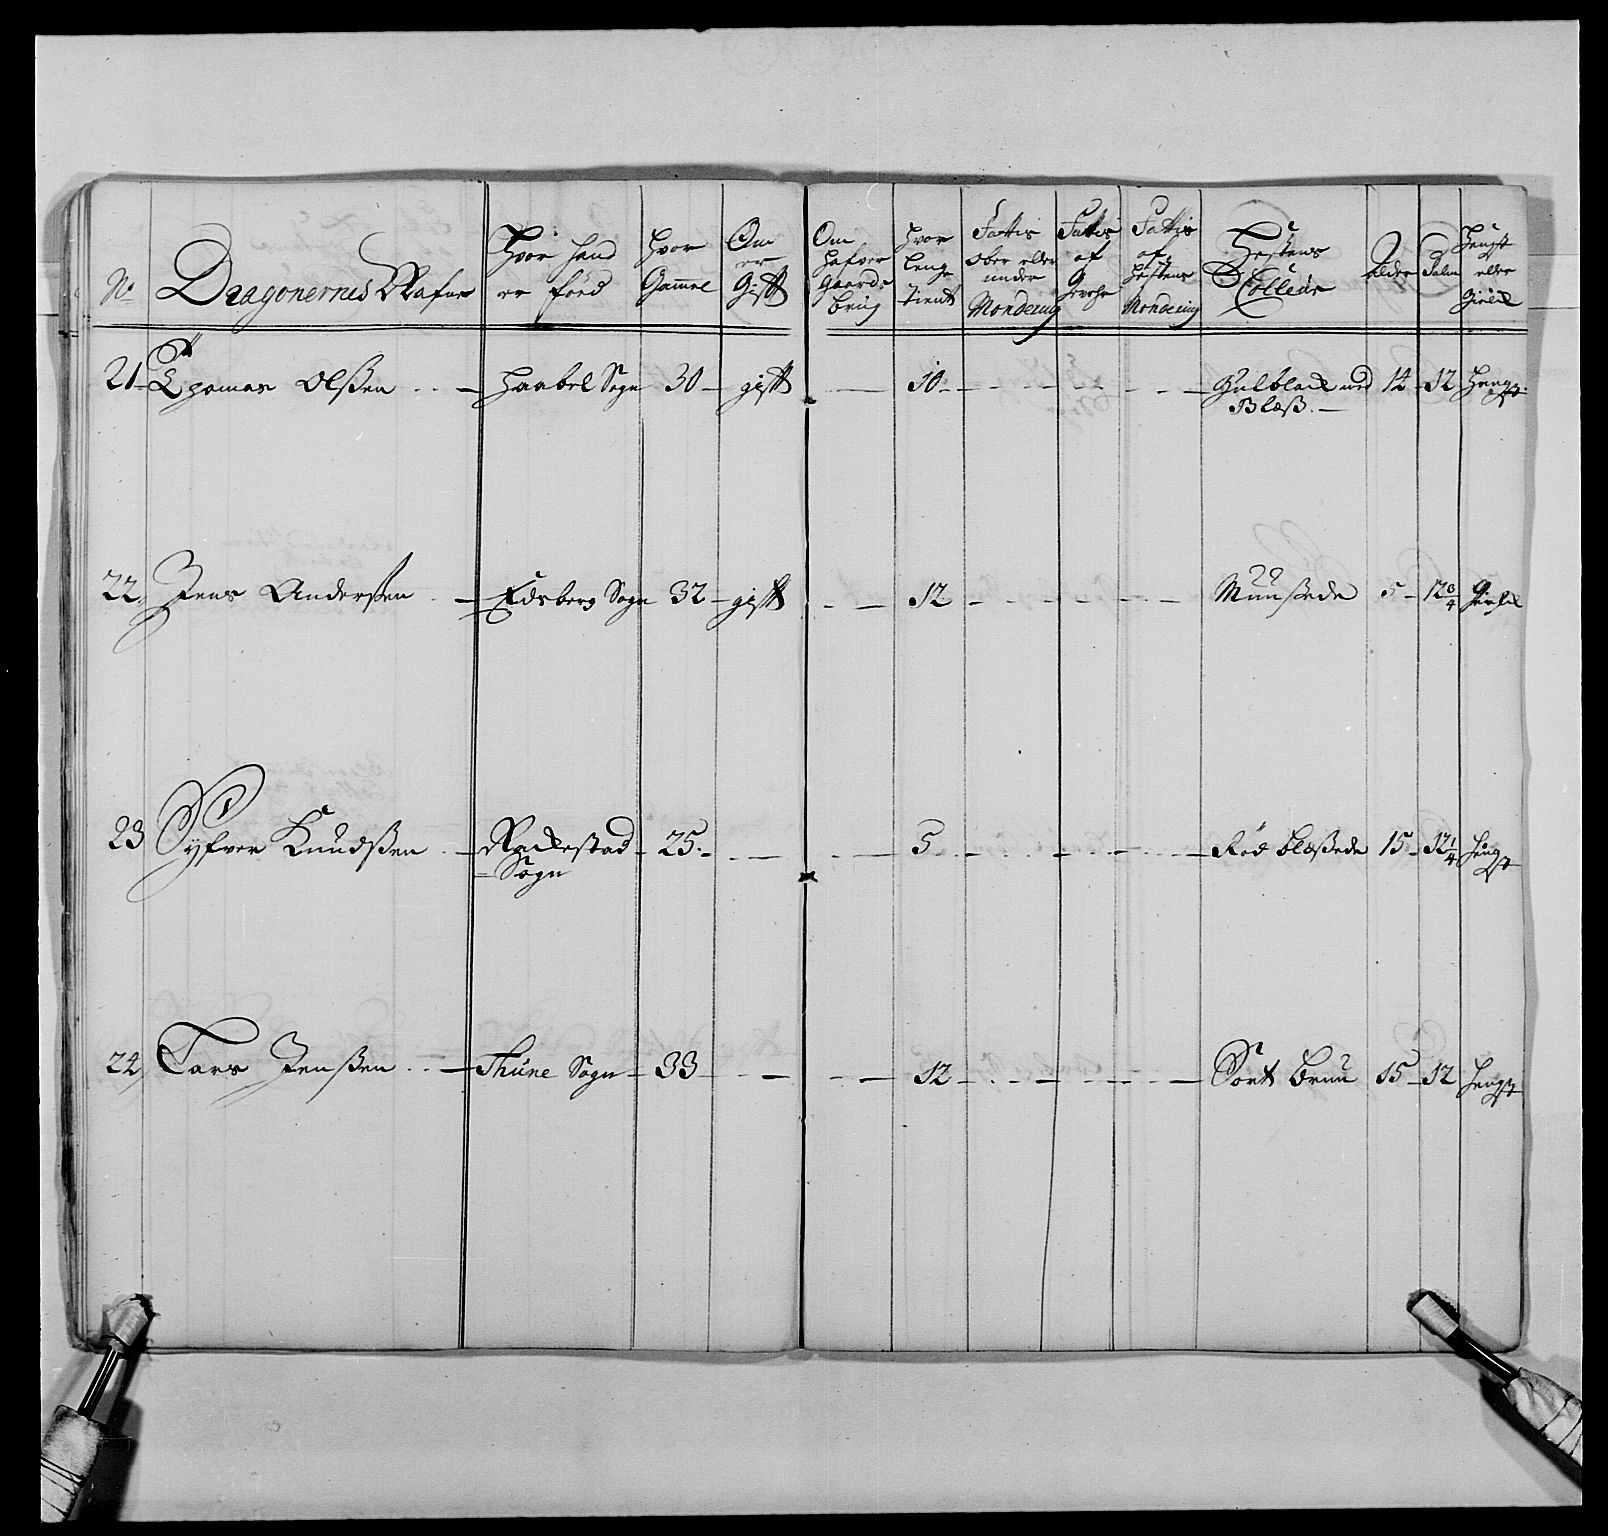 No Dragonernes Nafne Hvor hand er föed Hvor Gammel Om er Gift Om hafver Gaards brug Hvor lenge tient Fattis ober eller under Mondering Fattis af Gevehr Fattis af hestens Mondering Hestens Colleur Alder Palm Hengst eller Gield
21 Thomas Olßen Haabel Sogn 30 gift 10 Gulblack med Blæß 14 12 Hengst
22. Jens Anderßen Edsberg Sogn 32 gift 12 Muußede 5 12 3/4 Gield
23 Syfver Knudßen Rackestad Sogn 25 5 Röd blæßede 15 12 1/4 Hengst
24 Lars Jenßen Thune Sogn 33 12 Sort brun 15 12 Hengst